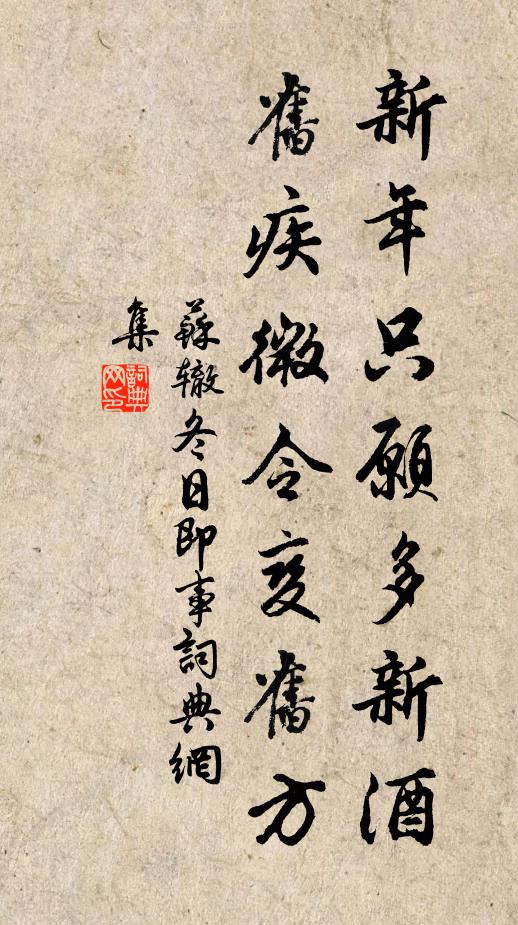 新年只願多新酒
舊疾微令变舊方
蘇辙冬日即事詞典網
集
詞典网印